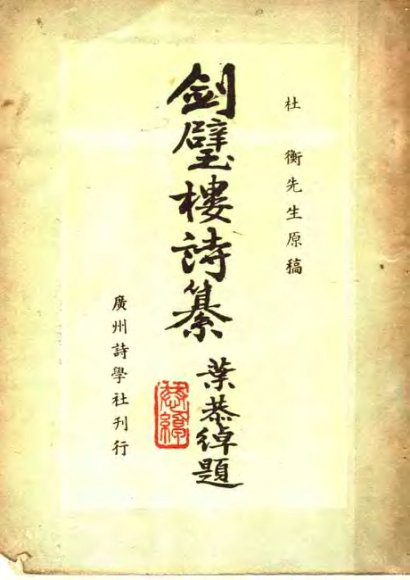 杜 衡先生原稿
劍璧樓詩纂
葉恭綽題
恭綽
廣州詩學社刊行